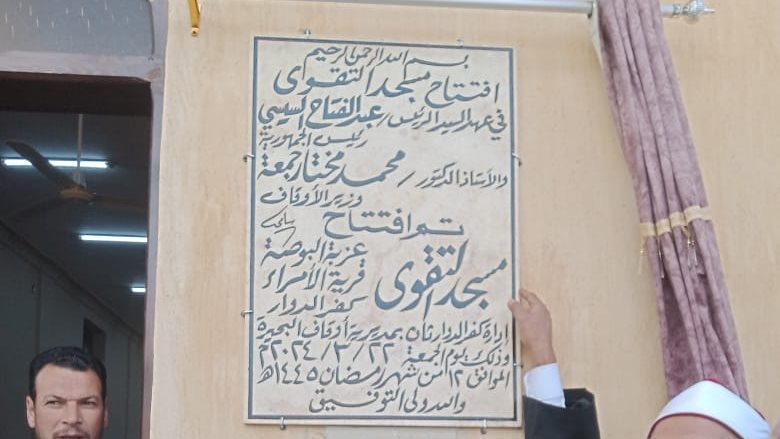 بسم الله الرحمن الرحيم
افتتاح مسجد التقوى
في عهد السيد الرئيس / عبد الفتاح السيسي
رئيس الجمهورية
والأستاذ الدكتور / محمد مختار جمعة
وزير الأوقاف
تم افتتاح
مسجد التقوى
عزبة البوصة
قرية الأمراء
كفر الدوار
إدارة كفر الدوار ثان بمديرية أوقاف البحيرة
وذلك يوم الجمعة ٢٢/٣/٢٠٢٤م
الموافق ١٢ من شهر رمضان ١٤٤٥هـ
والله ولى التوفيق